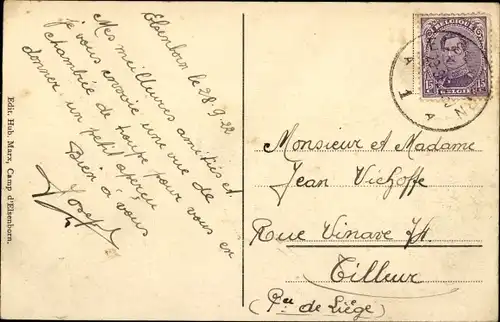 Elsenborn le 28-9-22
Mes meilleures amitiés et
je vous envoie une vue de
chambrée de troupe pour vous en
donner un petit aperçu
Bien à vous
Joseph
Edit. Hub. Marx, Camp d'Elsenborn.
BELGIQUE
15 15
BELGIE
A 1 A
Monsieur et Madame
Jean Vichoffe
Rue Vinave
Tilleur
(Pce de Liège)